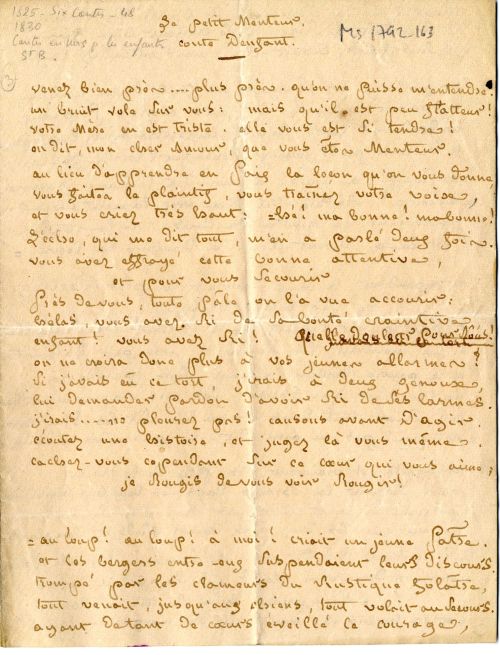 1825 - Six Contes - 48
1830
Contes en vers p. les enfants
St B.
Ms 1792 163
Le petit Menteur.
conte D'enfant.
venez bien près .... plus près. qu'on ne Puisse m'entendre:
un bruit vole sur vous: mais qu'il est peu flatteur!
votre Mère en est triste. elle vous est si tendre!
on dit, mon cher Amour, que vous êtes Menteur.
au lieu d'apprendre en Paix la leçon qu'on vous donne
vous faites le plaintif, vous traînez votre voix,
et vous criez très haut: =hé! ma bonne! ma bonne!
L'écho, qui me dit tout, m'en a parlé deux fois.
vous avez effrayé cette bonne attentive,
et pour vous secourir
Près de vous, toute pâle on l'a vue accourir:
hélas, vous avez Ri de sa bonté craintive
enfant! vous avez Ri! Quelle douleur Pour Vous!
on ne croira donc plus à vos jeunes allarmes!
Si j'avais eu ce tort, j'irais à deux genoux,
lui demander Pardon d'avoir Ri de ses larmes.
j'irais .... ne pleurez pas! causons avant D'agir.
écoutez une histoire, et jugez la vous même.
cachez-vous cependant sur ce cœur qui vous aime;
je Rougis de vous voir Rougir!
=au loup! au loup! à moi! criait un jeune Pâtre.
et les bergers entre-eux suspendaient leurs discours.
trompé par les clameurs du Rustique folâtre,
tout venait, jusqu'aux chiens, tout volait au secours.
ayant de tant de cœurs éveillé le courage,